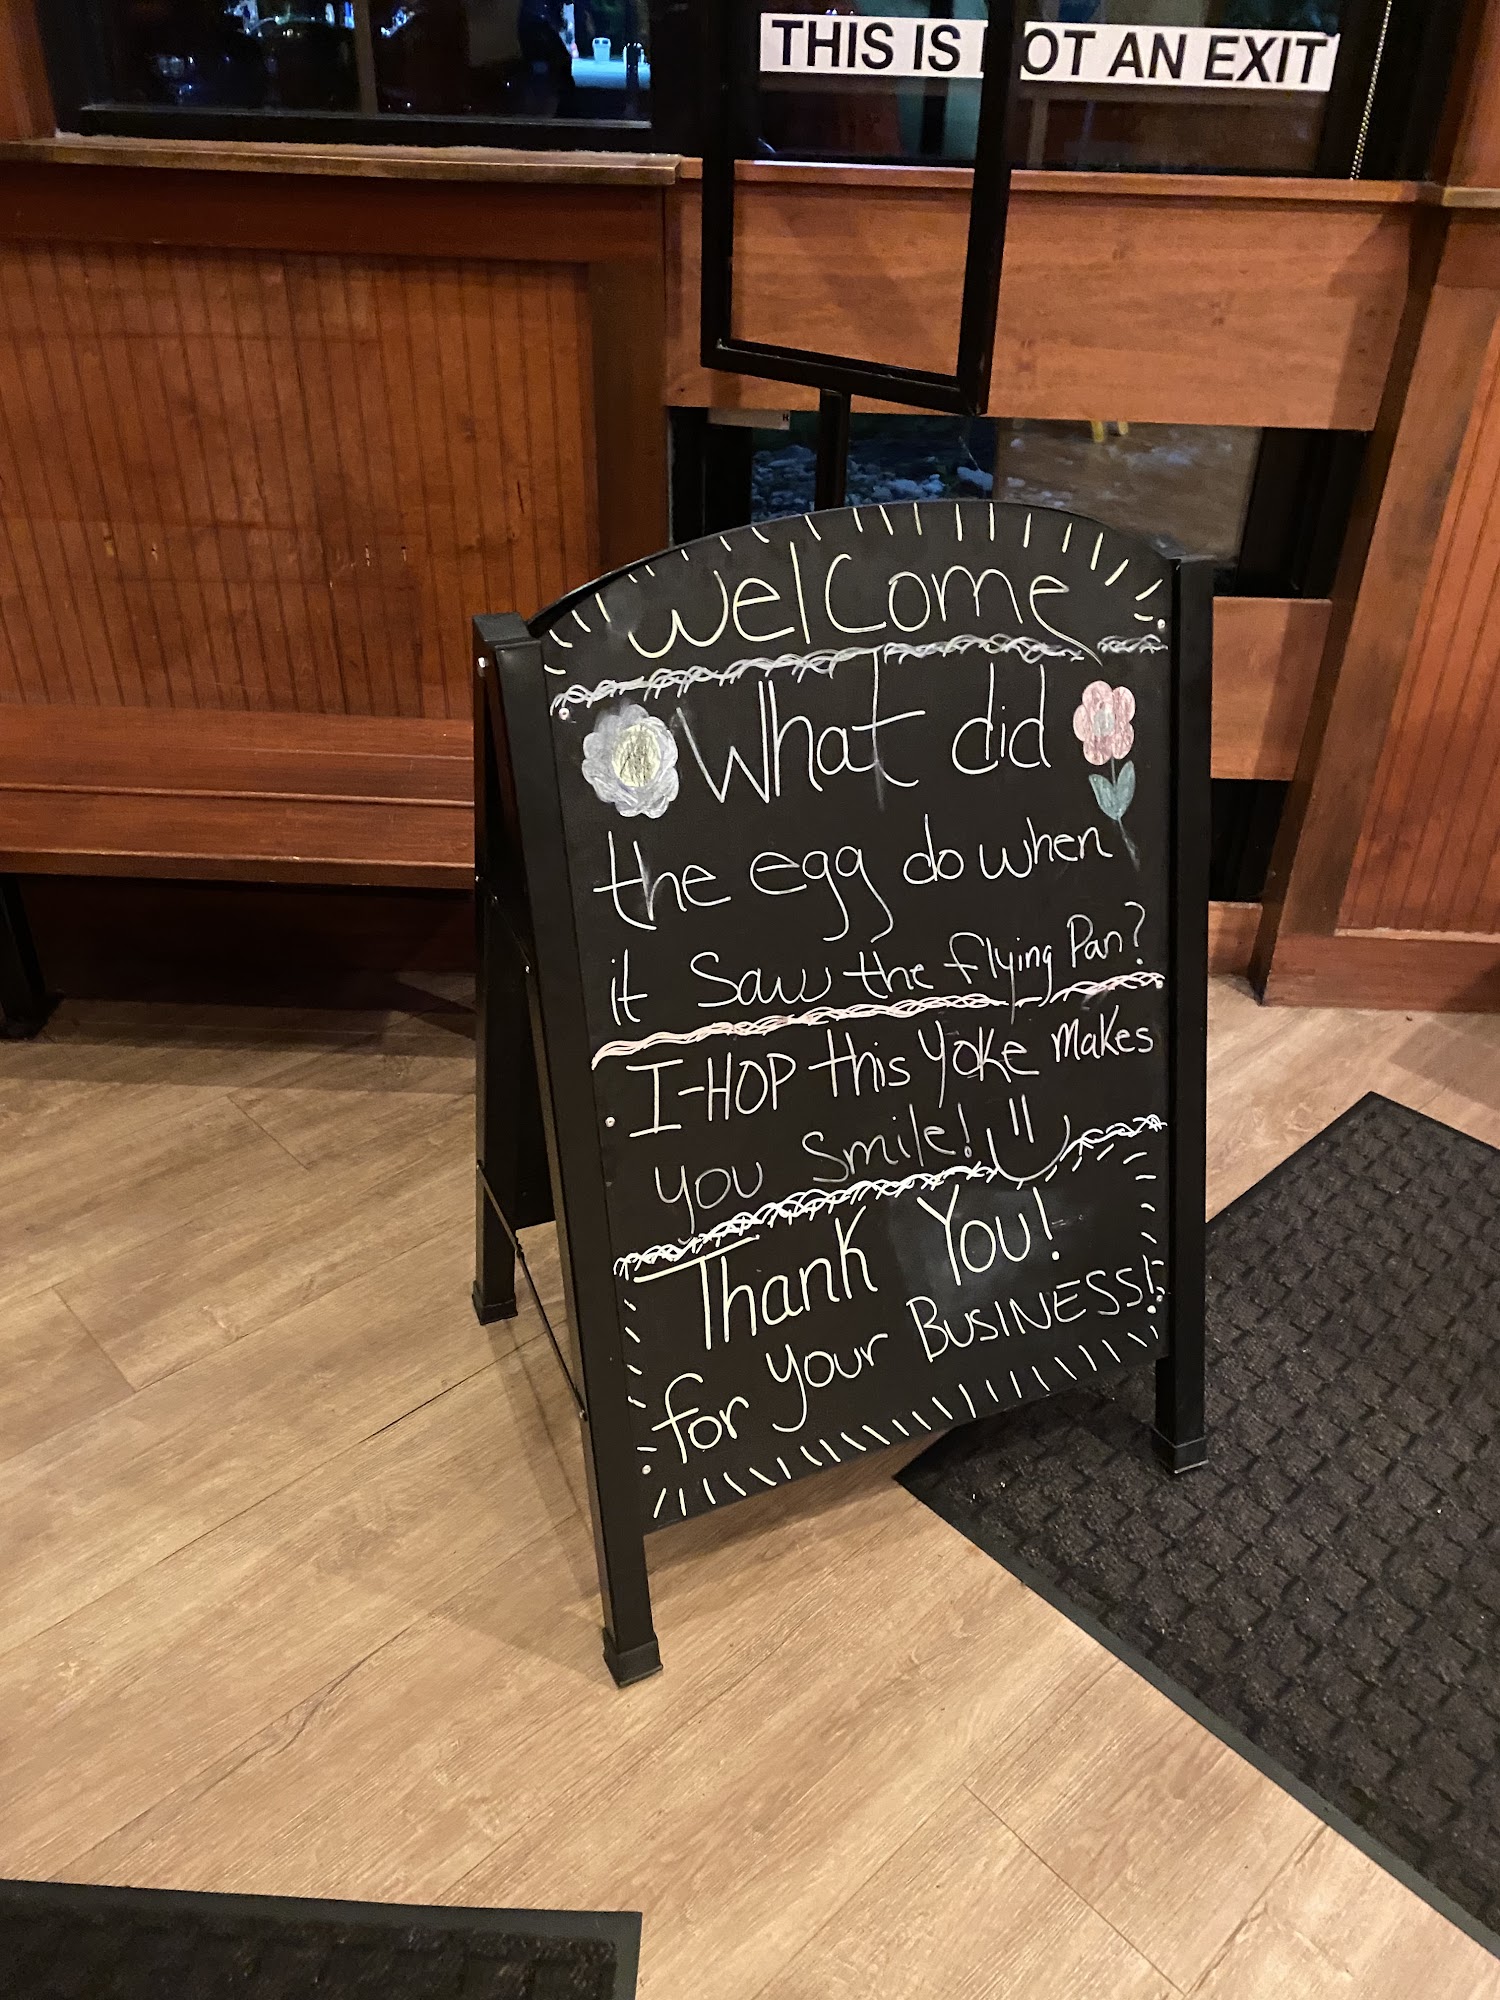 THIS IS OT AN EXIT
Welcome
What did
the egg do when
it Saw the flying Pan?
I-HOP this Yoke Makes
you Smile!
Thank You!
for your BUSINESS!